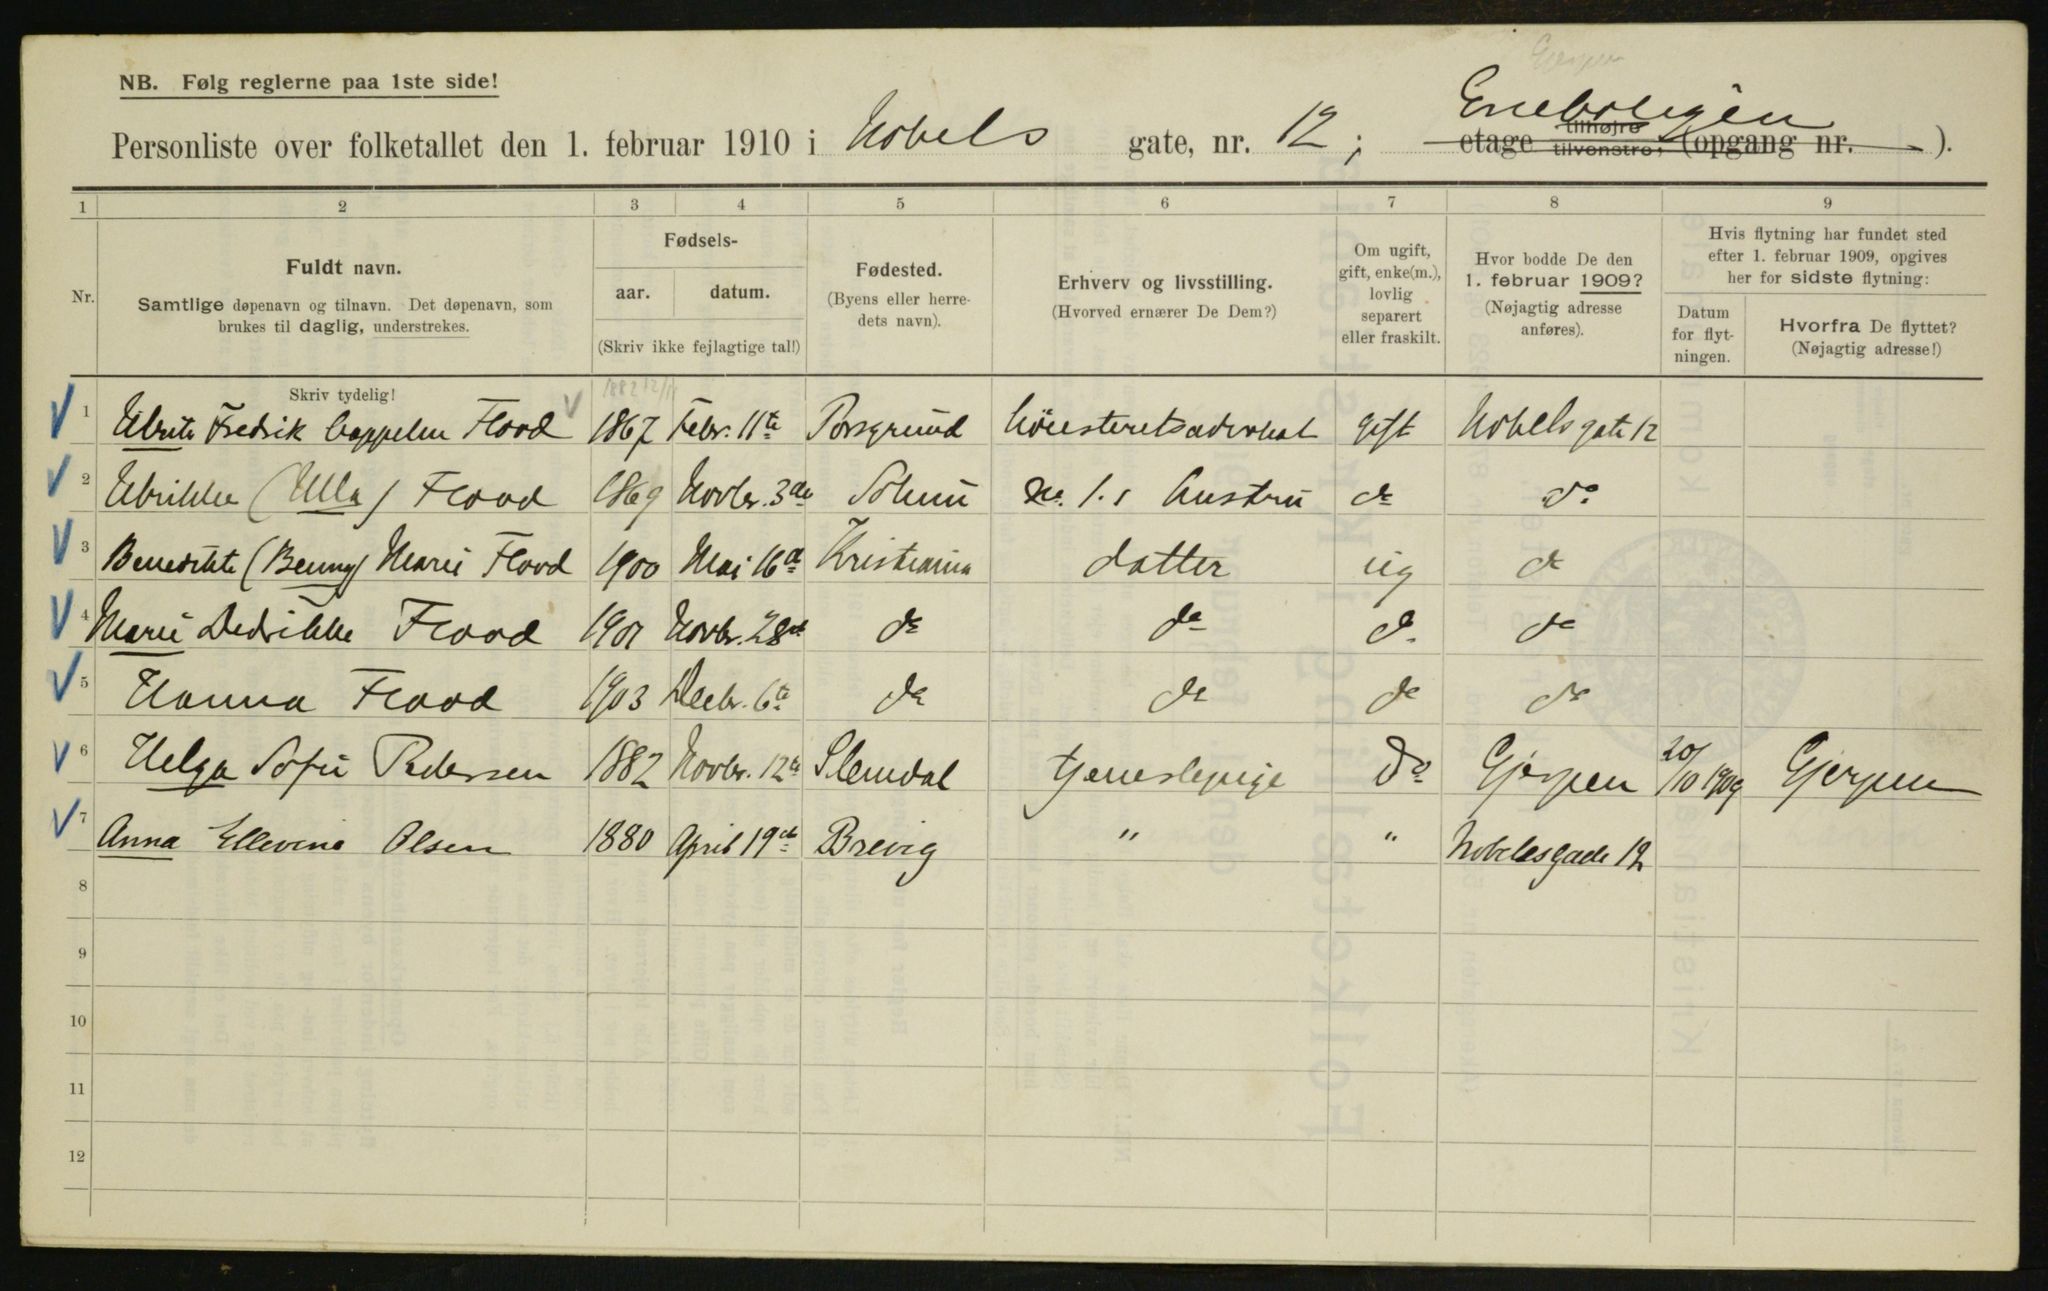 Gjerpen
NB. Følg reglerne paa 1ste side!
Personliste over folketallet den 1. februar 1910 i Nobels gate, nr. 12; Eneboligen etage tilhøjre tilvenstre, (opgang nr. ).
1 2 3 4 5 6 7 8 9
Nr.
Fuldt navn.
Samtlige døpenavn og tilnavn. Det døpenavn, som
brukes til daglig, understrekes.
Fødsels-
aar. datum.
(Skriv ikke fejlagtige tal!)
Fødested.
(Byens eller herre-
dets navn).
Erhverv og livsstilling.
(Hvorved ernærer De Dem?)
Om ugift,
gift, enke(m.),
lovlig
separert
eller fraskilt.
Hvor bodde De den
1. februar 1909?
(Nøjagtig adresse
anføres).
Hvis flytning har fundet sted
efter 1. februar 1909, opgives
her for sidste flytning:
Datum
for flyt-
ningen.
Hvorfra De flyttet?
(Nøjagtig adresse!)
Skriv tydelig!
1 Fredrik Cappelen Flood 1867 Febr. 11te Porsgrund Höiesteretsadvokat gift Nobelsgate 12
2 Ulrikke (Ulla) Flood 1869 Novbr. 3de do do
3 Benedikte (Benny) Marie Flood 1900 Mai 16de Kristiania datter ug do
4 Marie Dedrikke Flood 1901 Novbr. 28de do do do do
5 Hanna Flood 1903 Decbr. 6te do do do do
6 Helga Sofie Pedersen 1882 Novbr. 12te Slemdal tjenestepige do Gjerpen 20/10 1909 Gjerpen
7 Anna Ellevine Olsen 1880 April 19de Brevig " " Nobelsgade 12
8
9
10
11
12